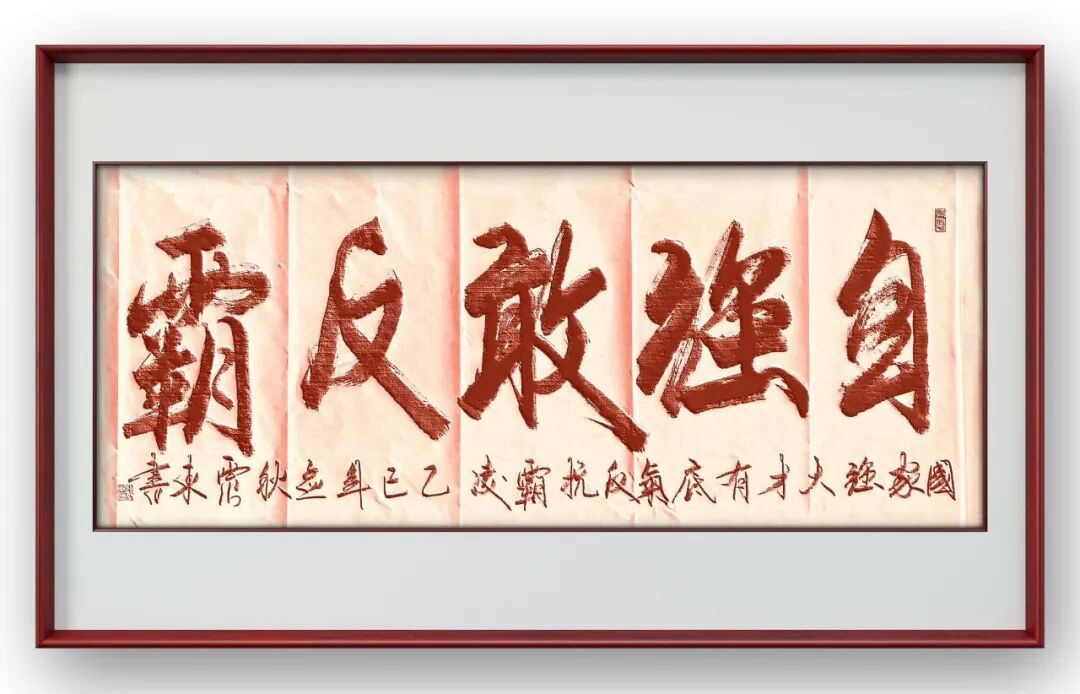 自强敢反霸
國家強大才有底氣反抗霸凌 乙巳年立秋 震東書